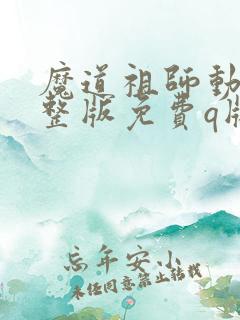 魔道祖師動
整版免費q版
忘年安小
未经同意禁止转载